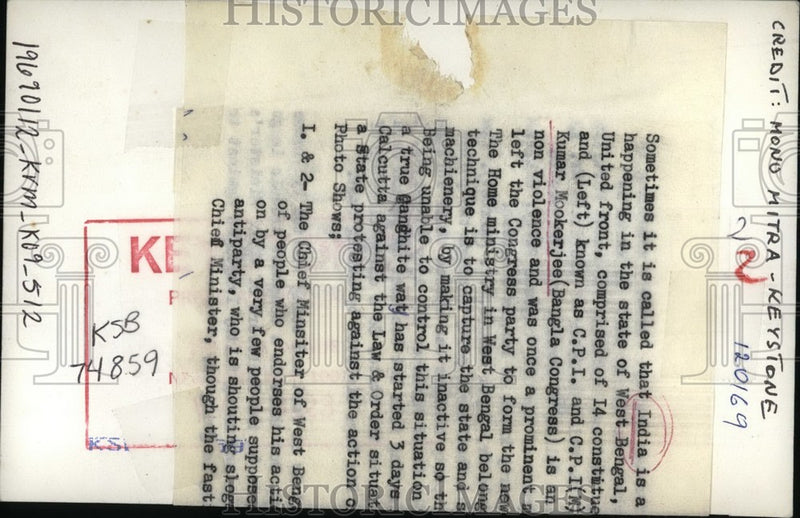 CREDIT: MONU MITRA - KEYSTONE
120169
Sometimes it is called that India is a
happening in the state of West Bengal,
United front, comprised of I4 constitue
and (Left) known as C.P.I. and C.P.I(M)
Kumar Mookerjee(Bangla Congress) is an
non violence and was once a prominent
left the Congress party to form the new
The Home ministry in West Bengal belong
technique is to capture the state and s
machienery, by making it inactive so th
Being unable to control this situation
a true Gandhite way has started 3 days
Calcutta against the Law & Order situat
a State protesting against the action
Photo Shows;
I. & 2- The Chief Minsiter of West Beng
of people who endorses his acti
on by a very few people suppose
antiparty, who is shouting slog
Chief Minister, though the fast
KE
KSB
74859
19690112_KKM_K09_512
HISTORIC IMAGES
HISTORIC IMAGES